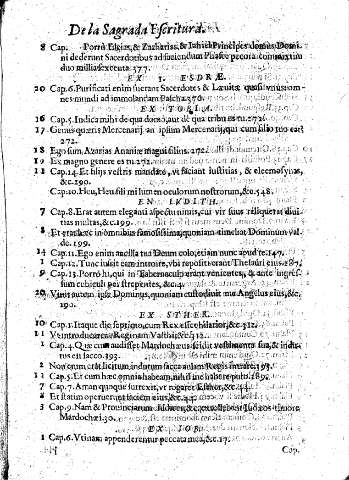 De la Sagrada Escritura.
8 Cap. Porrò Elgias, & Zacharias, & Iahiel Principes domus Domi-
ni dederunt Sacerdotibus ad faciendum Phase pecora commixtim
duo millia sexcenta 377.
EX I. ESDRÆ.
20 Cap.6. Purificati enim fuerant Sacerdotes & Levitæ quasi unus om-
nes mundi ad immolandam Pascha 370.
EX TOBIA.
16 Cap.5. Indica mihi de qua domo, aut de qua tribu es tu 272.
17 Genus quæris Mercenarij, an ipsum Mercenarij, qui cum filio tuo eat?
272.
18 Ego sum Azarias Ananiæ magni filius. 272.
19 Ex magno genere es tu. 272.
11 Cap.14. Et filijs vestris mandate, ut faciant iustitias, & eleemosynas,
&c. 290.
Cap.10. Heu, Heu fili mi lumen oculorum nostrorum, &c. 548.
EN IVDITH.
7 Cap.8. Erat autem eleganti aspectu nimis, cui vir suus reliquerat divi-
tias multas, &c. 199.
8 Et erat hæc in omnibus famosissima, quoniam timebat Dominum val-
de. 199.
Cap.11. Ego enim ancilla tua Deum colo, etiam nunc apud te. 147.
1 Cap.12. Tunc iussit eam introire, ubi repositi erant Thesauri eius. 287.
9 Cap.13. Porrò hi, qui in Tabernaculo erant venientes, & ante ingres-
sum cubiculi perstrepentes, &c. 4.
20 Vivit autem ipse Dominus, quoniam custodivit me Angelus eius, &c.
190.
EX ESTHER.
10 Cap.1. Itaque die septimo, cum Rex esset hilarior, &c. 312.
11 Ut introducerent Reginam Vasthi, &c. 312.
1 Cap.4. Quæ cum audisset Mardochæus, scidit vestimenta sua, & indu-
tus est sacco. 193.
2 Non enim erat licitum indutum sacco aulam Regis intrare. 193.
13 Cap.5. Et cum hæc omnia habeam, nihil me habere puto. 189.
7 Cap.7. Aman quoque surrexit, ut rogaret Esther, &c. 44.
8 Et statim operuerunt faciem eius, &c. 44.
3 Cap.9. Nam & Provinciarum Iudices, &c. extollebant Iudæos timore
Mardochæi. 30.
EX IOB.
1 Cap.6. Utinam appenderentur peccata mea, &c. 17.
Cap.